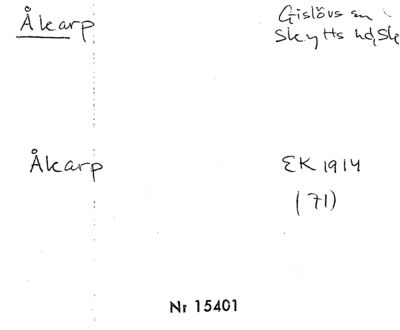 Åkarp
Gislövs sn
Skytts hd, Sk
Åkarp
EK 1914
(71)
Nr 15401